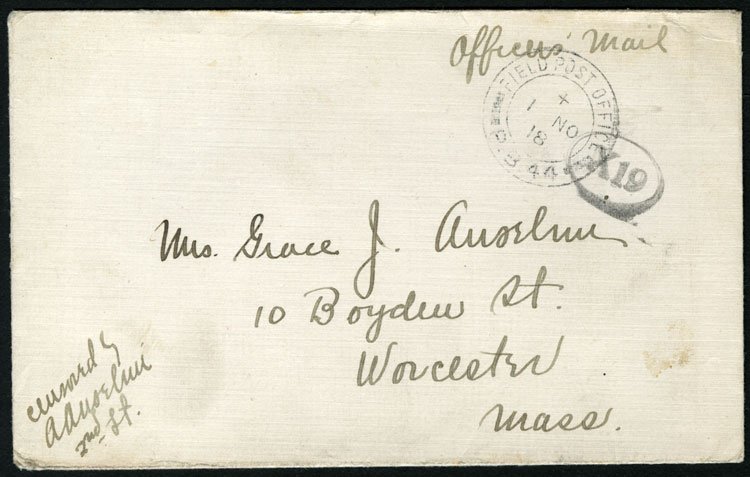 Officers' Mail
FIELD POST OFFICE
X
1 NO
18
P.B. 44
X19
Mrs. Grace J. Anselmi
10 Boyden St.
Worcester
Mass.
censored by
A Anselmi
2nd Lt.